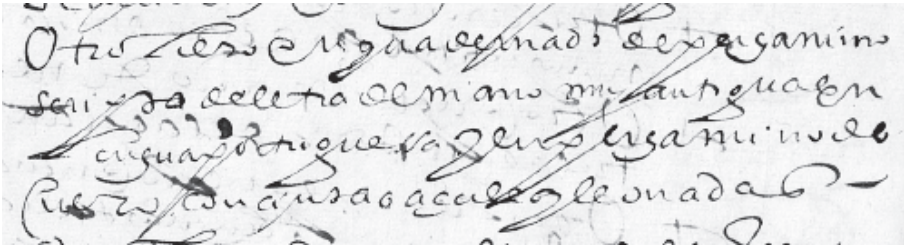 Otro libro enquadernado de pergamino
scripto de letra de mano muy antigua en
lengua portuguesa y en pergamino de
cuero con